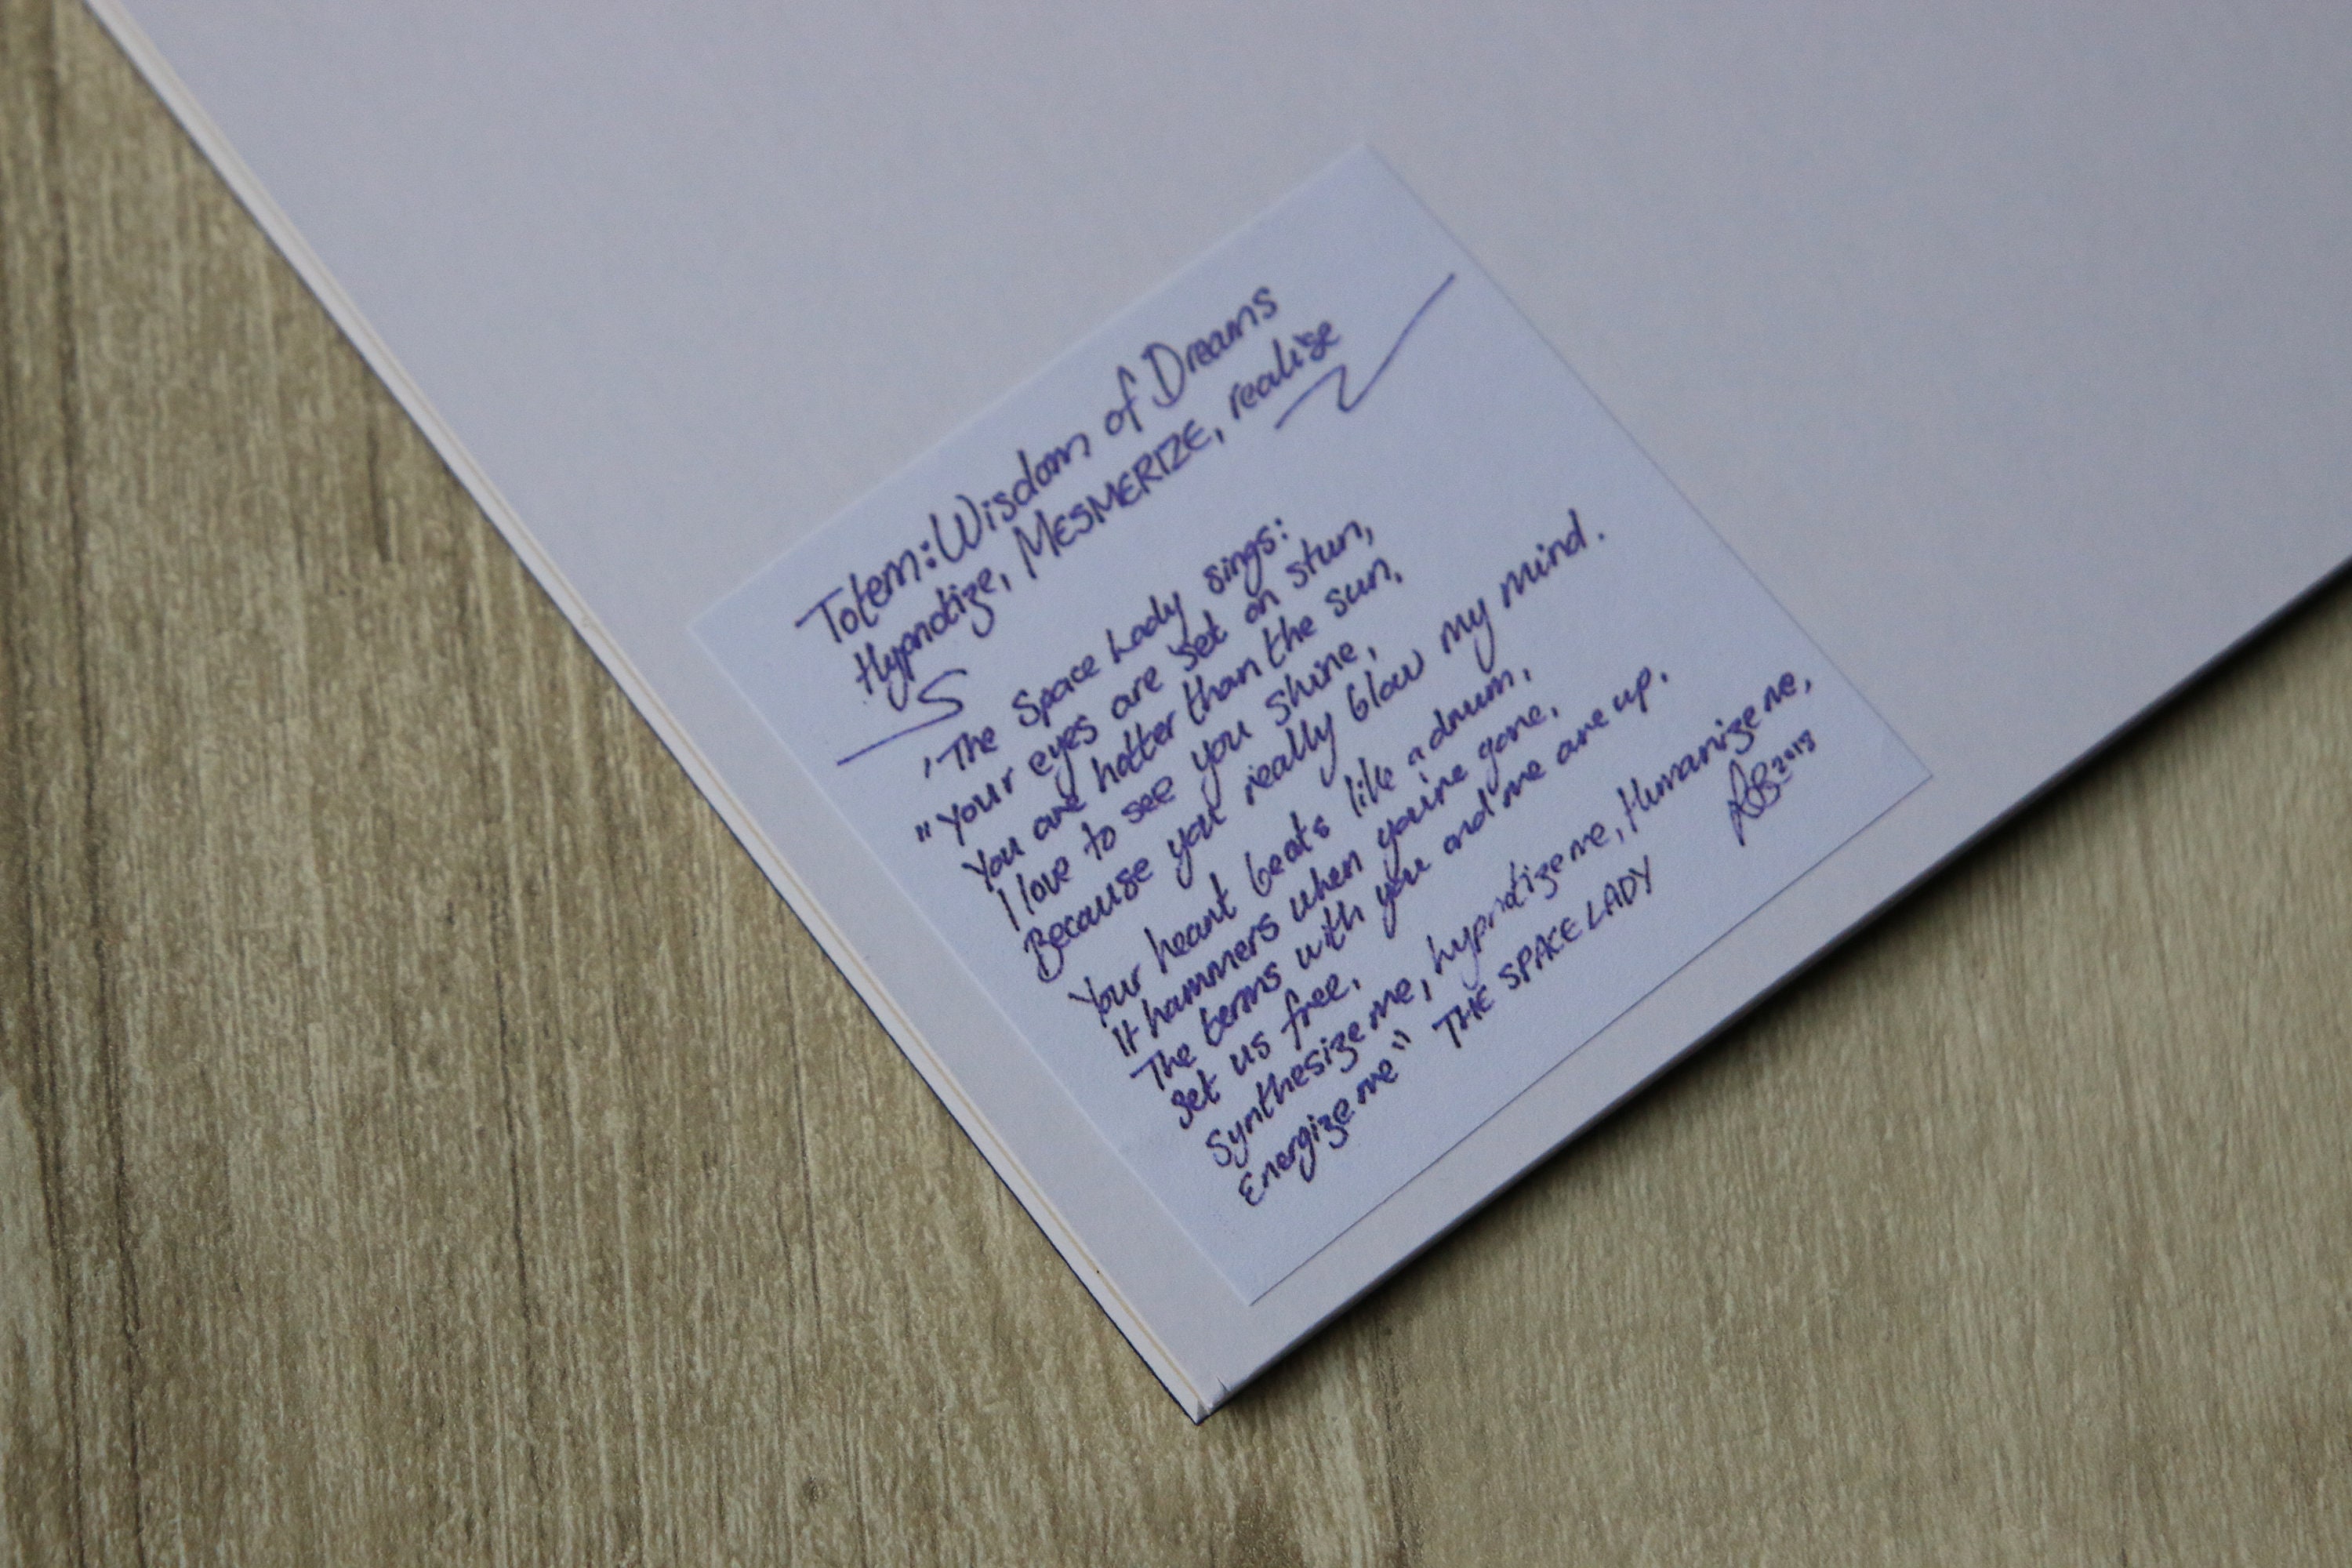 Totem: Wisdom of Dreams
Hypnotize, MESMERIZE, realise
'The Space Lady sings:
"Your eyes are set on stun,
You are hotter than the sun,
I love to see you shine,
Because you really blow my mind.
Your heart beats like a drum,
It hammers when you're gone,
The terms with you and me are up,
Set us free,
Synthesize me, hypnotize me, Humanize me,
Energize me" THE SPACE LADY
2018